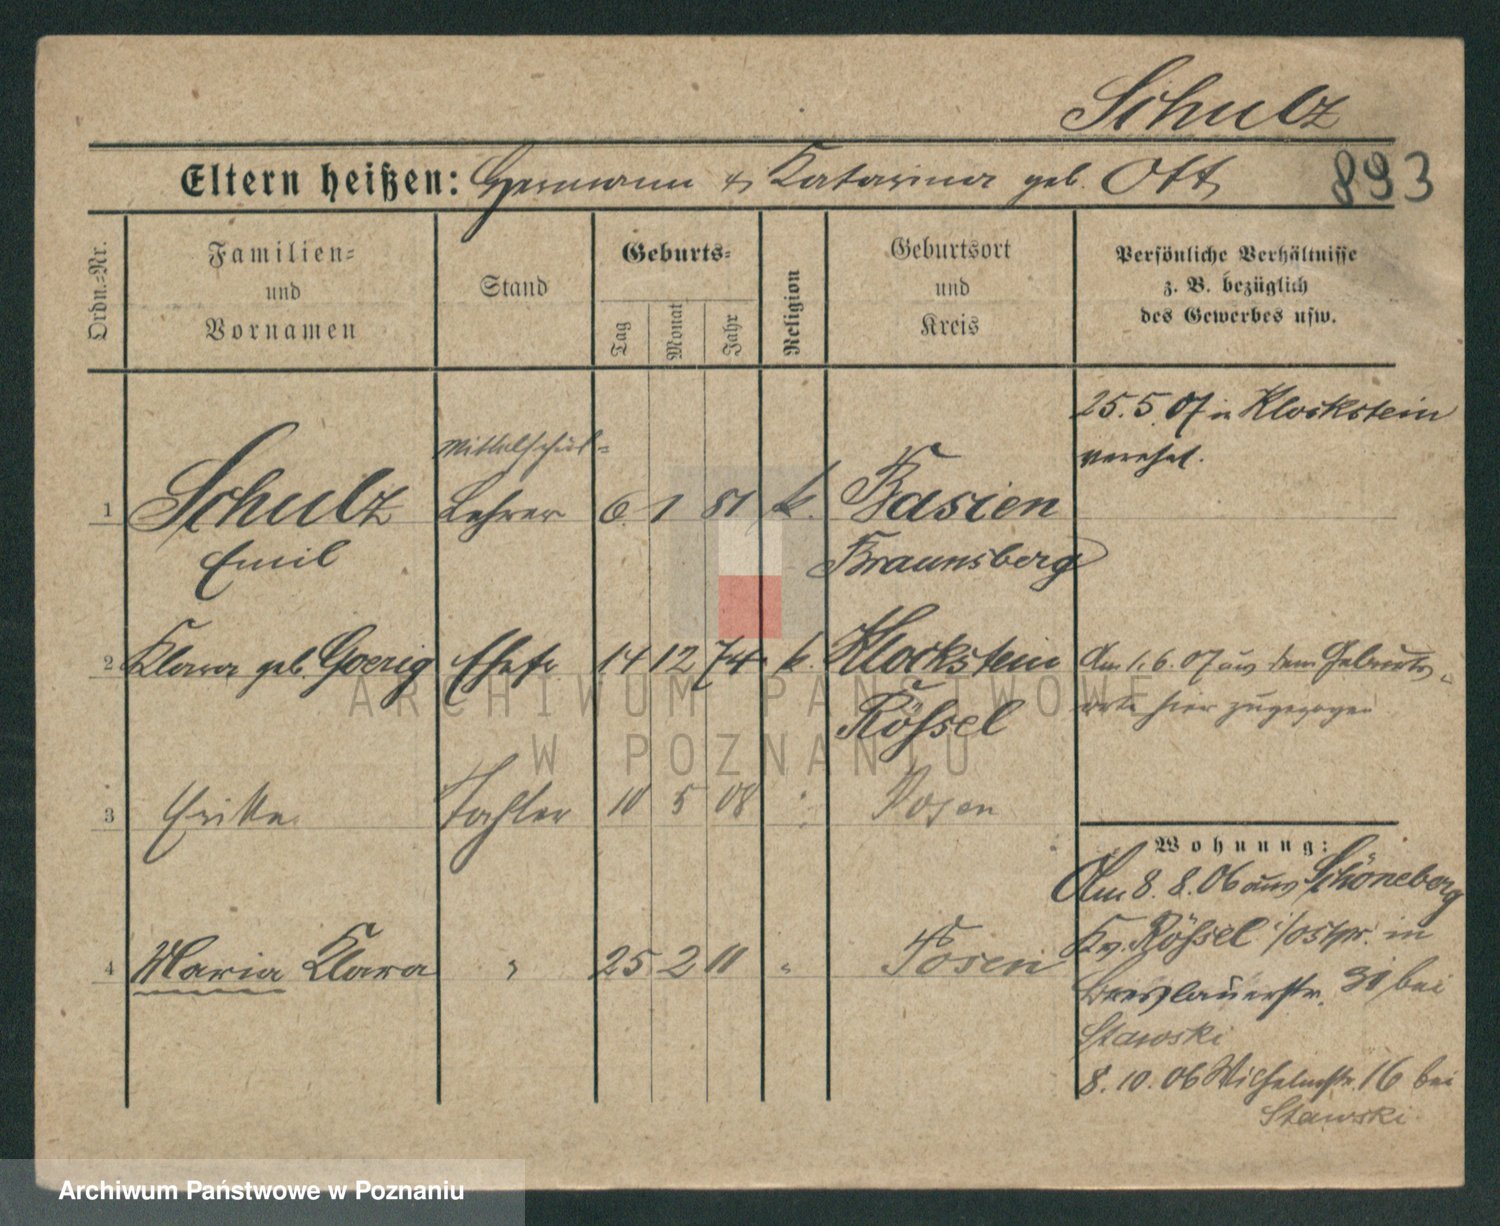 Schulz
Eltern heißen: Hermann & Katarina geb. Ott
893
Ordn.=Nr.
Familien=
und
Vornamen
Stand
Geburts=
Tag
Monat
Jahr
Religion
Geburtsort
und
Kreis
Persönliche Verhältnisse
z. B. bezüglich
des Gewerbes usw.
25.5.07 in Klockstein
vereht.
Mittelschul=
1 Schulz Lehrer 6. 1 81 k. Basien
Emil Braunsberg
2 Klara geb. Goerig Ehefr 14 12 74 k. Klockstein Am 1.6.07 aus dem Geburts=
Rößel orte hier zugezogen
3 Erika Tochter 10 5 08 Posen
Wohnung:
Am 8.8.06 aus Schöneberg
Kr. Rößel /Ostpr. in
4 Maria Klara " 25 2 11 " Posen
Breslauerstr. 31 bei
Stawski
8.10.06 Wilhelmstr. 16 bei
Stawski
ARCHIWUM PAŃSTWOWE
W POZNANIU
Archiwum Państwowe w Poznaniu